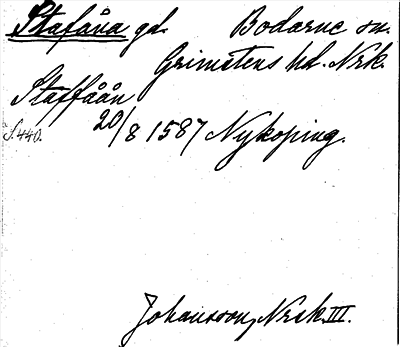 Stafåna gd. Bodarne sn.
Grimstens hd. Nrk.
Staffåån
S. 440. 20/8 1587 Nykoping.
Johansson, Nrsk III.